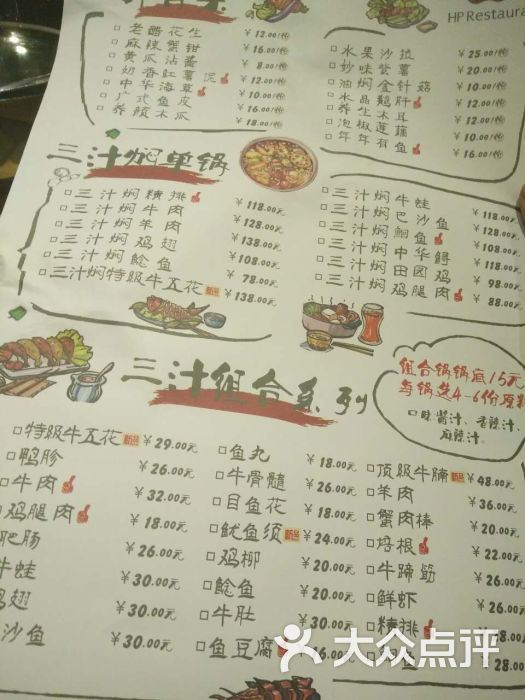 HP Restaura
老醋花生 ¥12.00/份
麻辣蟹钳 ¥16.00/份
黄瓜沾酱 ¥8.00/份
奶香红薯泥 ¥12.00/份
中华海草 ¥10.00/份
广式鱼皮 ¥16.00/份
养颜木瓜 ¥18.00/份
水果沙拉 ¥25.00/份
妙味紫薯 ¥20.00/份
油焖金针菇 ¥10.00/份
水晶鹅肝 ¥12.00/份
养生木耳 ¥12.00/份
泡椒莲藕 ¥10.00/份
年年有鱼 ¥16.00/份
三汁焖单锅
三汁焖精排 ¥118.00元
三汁焖牛肉 ¥128.00元
三汁焖羊肉 ¥138.00元
三汁焖鸡翅 ¥108.00元
三汁焖鲶鱼 ¥78.00元
三汁焖特级牛五花 新品 ¥138.00元
三汁焖牛蛙 ¥118.00元
三汁焖巴沙鱼 ¥128.00元
三汁焖鮰鱼 ¥108.00元
三汁焖中华鲟 ¥118.00元
三汁焖田园鸡 ¥98.00元
三汁焖鸡腿肉 ¥88.00元
三汁组合系列
组合锅锅底15元
每锅选4-6份原料
口味酱汁、香辣汁、
麻辣汁。
特级牛五花 新品 ¥29.00元
鸭胗 ¥26.00元
牛肉 ¥32.00元
鸡腿肉 ¥18.00元
肥肠 ¥26.00元
牛蛙 ¥30.00元
鸡翅 ¥30.00元
沙鱼 ¥30.00元
鱼丸 ¥18.00元
牛骨髓 ¥26.00元
目鱼花 ¥18.00元
鱿鱼须 新品 ¥24.00元
鸡柳 ¥20.00元
鲶鱼 ¥20.00元
牛肚 ¥30.00元
鱼豆腐 ¥16.00元
顶级牛腩 新品 ¥48.00元
羊肉 ¥36.00元
蟹肉棒 ¥20.00元
培根 ¥22.00元
牛蹄筋 ¥26.00元
鲜虾 ¥30.00元
精排
¥28.00元
大众点评